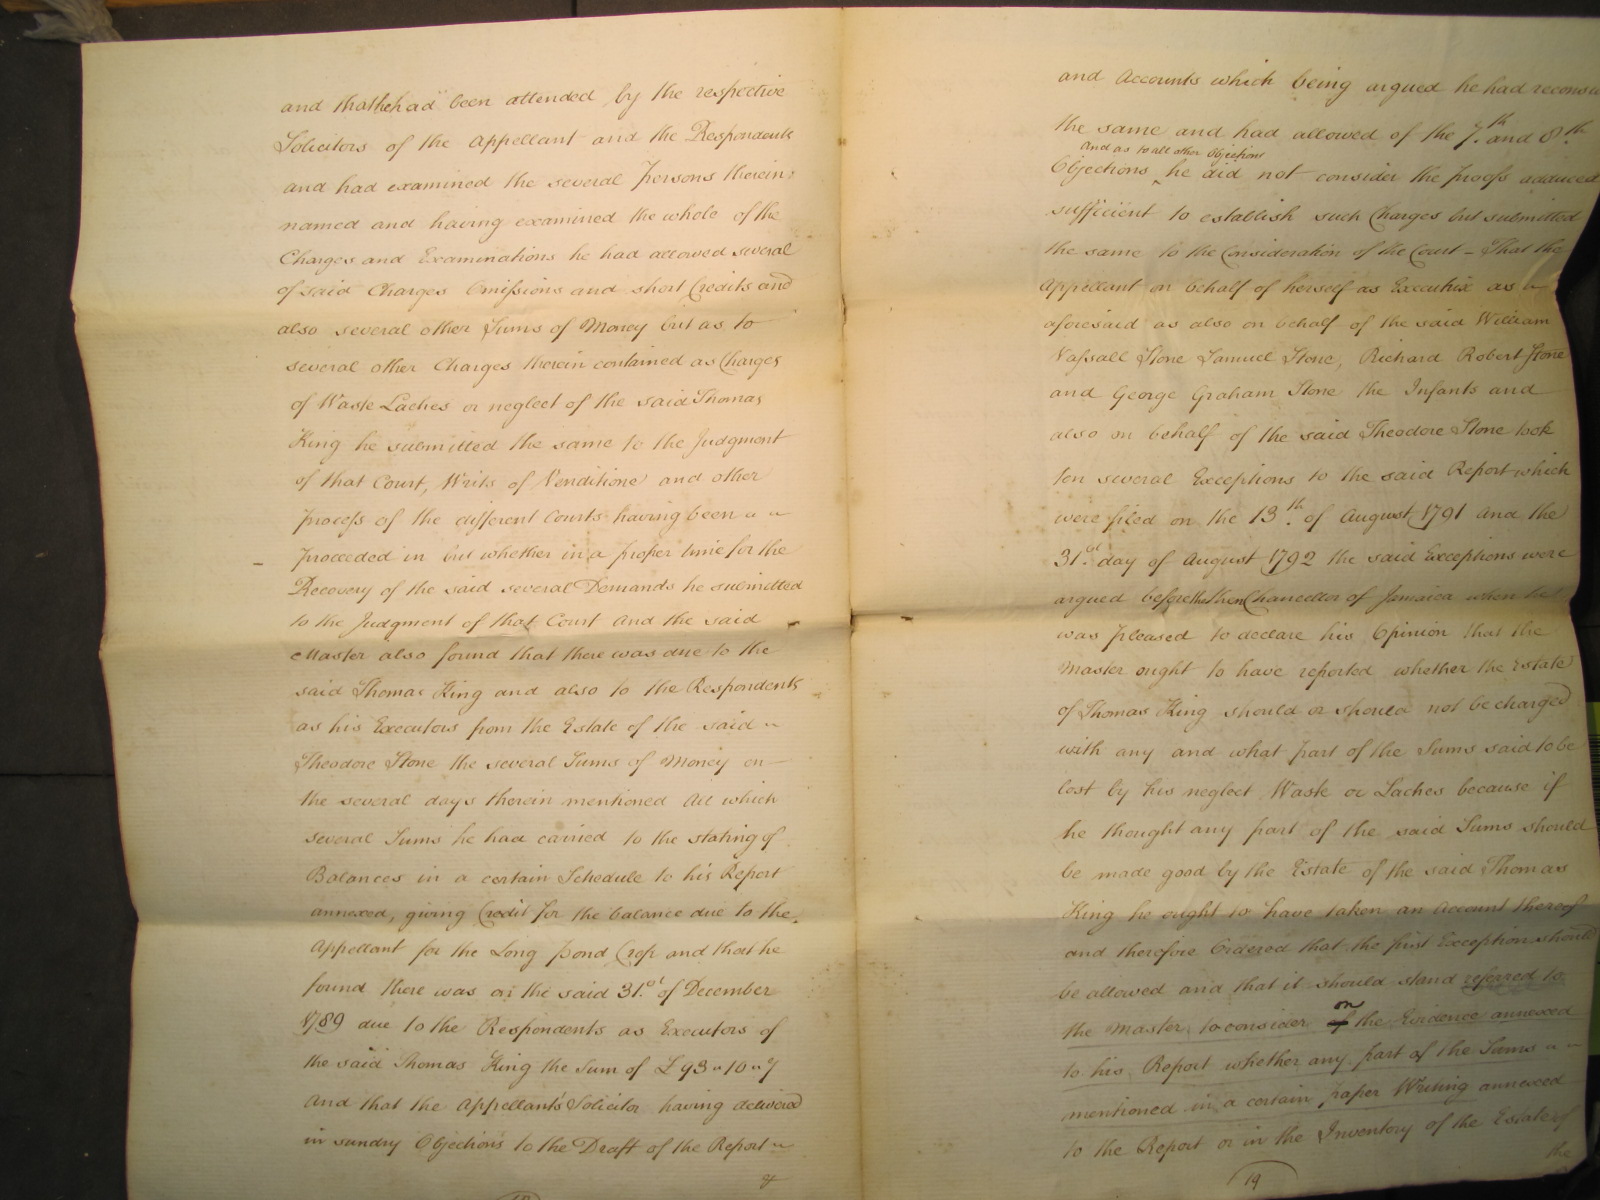 and that he had been attended by the respective
Solicitors of the Appellant and the Respondents
and had examined the several Persons therein
named and having examined the whole of the
Charges and Examinations he had allowed several
of said Charges Omissions and short Credits and
also several other Sums of Money but as to
several other Charges therein contained as Charges
of Waste Laches or neglect of the said Thomas
King he submitted the same to the Judgment
of that Court, Writs of Venditione and other
process of the different Courts having been
proceeded in but whether in a proper time for the
Recovery of the said several Demands he submitted
to the Judgment of that Court and the said
Master also found that there was due to the
said Thomas King and also to the Respondents
as his Executors from the Estate of the said
Theodore Stone the several Sums of Money on
the several days therein mentioned All which
several Sums he had carried to the stating of
Balances in a certain Schedule to his Report
annexed, giving Credit for the balance due to the
Appellant for the Long pond Crop and that he
found there was on the said 31.st of December
1789 due to the Respondents as Executors of
the said Thomas King the Sum of
And that the Appellants Solicitor having delivered
in sundry Objections to the Draft of the Report
and Accounts which being argued he had
the same and had allowed of the 7.th and 8.th
And as to all other Objections
Objections he did not consider the proofs adduced
sufficient to establish such Charges but submitted
the same to the Consideration of the Court - That the
Appellant on behalf of herself as Executrix as
aforesaid as also on behalf of the said William
Vassall Stone Samuel Stone, Richard Robert Stone
and George Graham Stone the Infants and
also on behalf of the said Theodore Stone took
ten several Exceptions to the said Report which
were filed on the 13.th of August 1791 and the
31.st day of August 1792 the said Exceptions were
argued before the then Chancellor of Jamaica when he
was pleased to declare his Opinion that the
Master ought to have reported whether the Estate
of Thomas King should or should not be charged
with any and what part of the Sums said to be
lost by his neglect Waste or Laches because if
he thought any part of the said Sums should
be made good by the Estate of the said Thomas
King he ought to have taken an Account thereof
and therefore Ordered that the first Exception should
be allowed and that it should stand referred to
on
the Master to consider of the Evidence annexed
to his Report whether any part of the Sums
mentioned in a certain paper Writing annexed
to the Report or in the Inventory of the Estate of
the
19